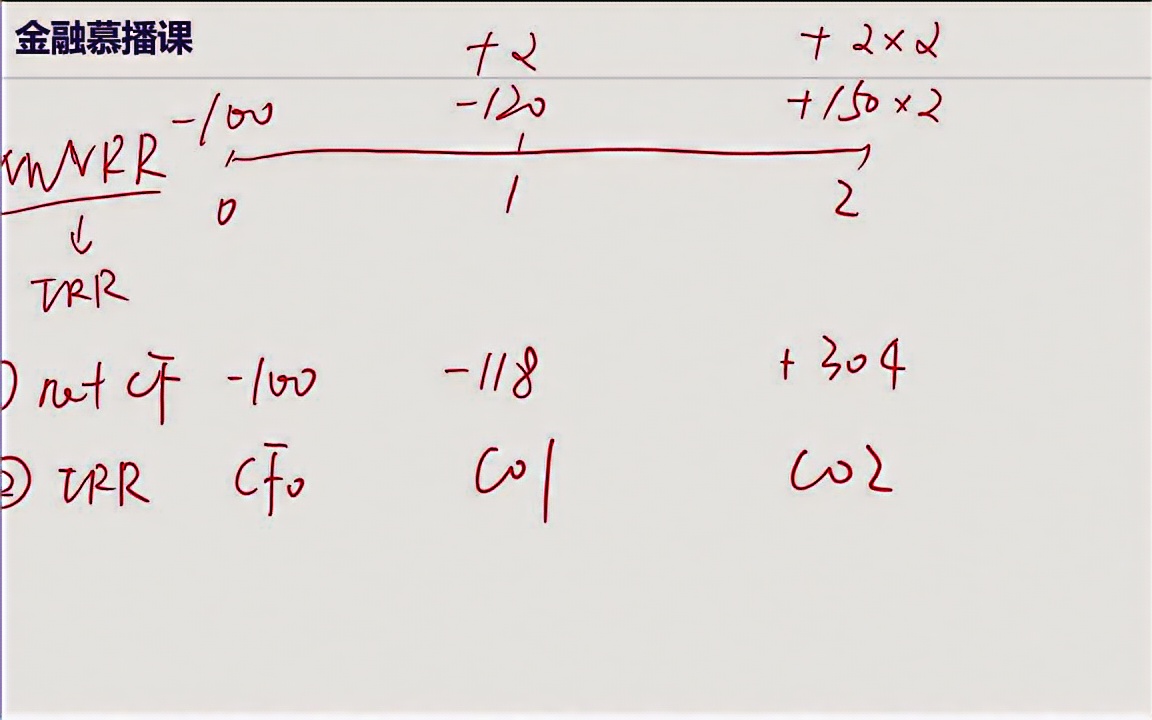 金融慕播课
+2 +2×2
-100 -120 +150×2
0 1 2
↓
IRR
net CF -100 -118 +304
② IRR CF0 C01 C02